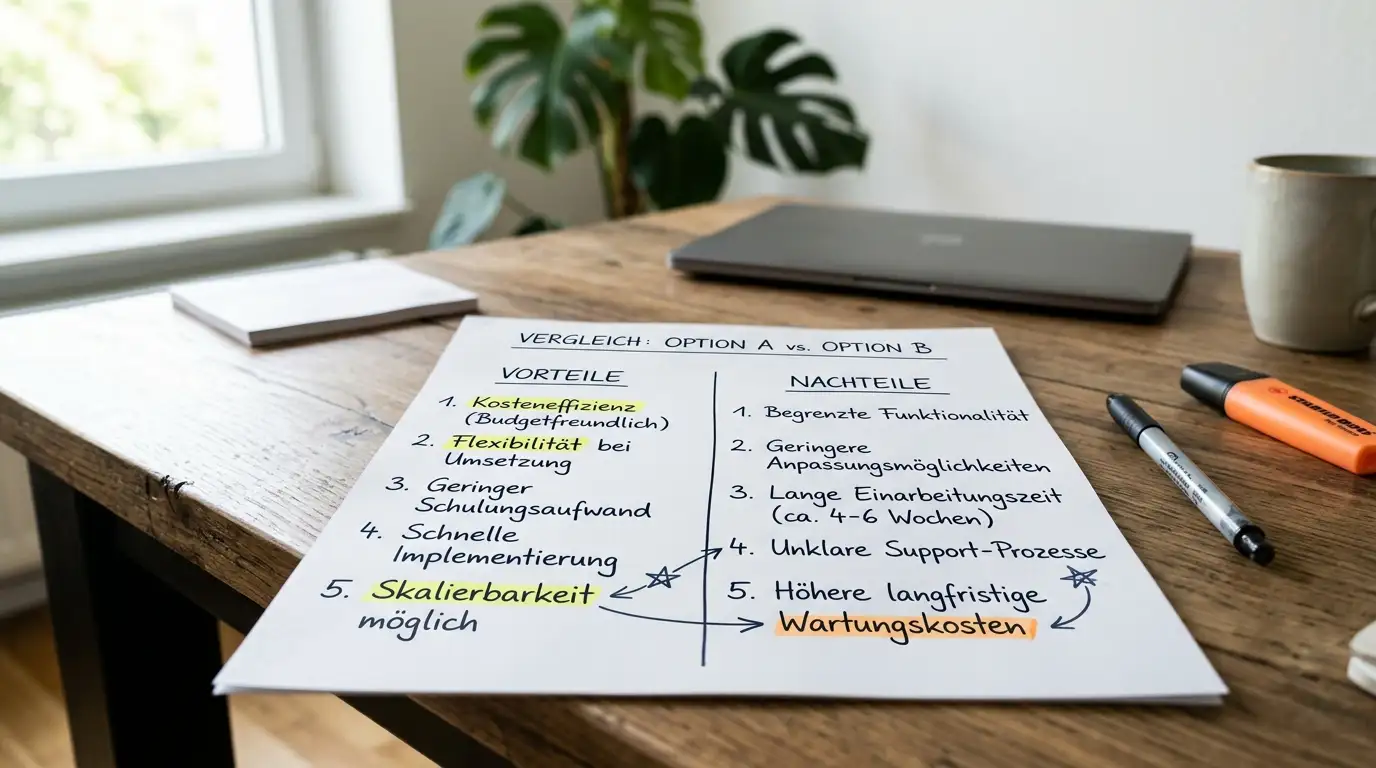 VERGLEICH: OPTION A vs. OPTION B
VORTEILE
1. Kosteneffizienz
(Budgetfreundlich)
2. Flexibilität bei
Umsetzung
3. Geringer
Schulungsaufwand
4. Schnelle
Implementierung
5. Skalierbarkeit
möglich
NACHTEILE
1. Begrenzte Funktionalität
2. Geringere
Anpassungsmöglichkeiten
3. Lange Einarbeitungszeit
(ca. 4-6 Wochen)
4. Unklare Support-Prozesse
5. Höhere langfristige
Wartungskosten